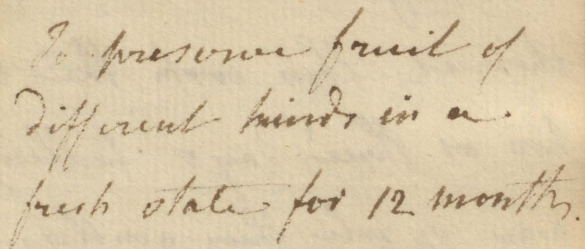 To preserve fruit of
different kinds in a
fresh state for 12 months.